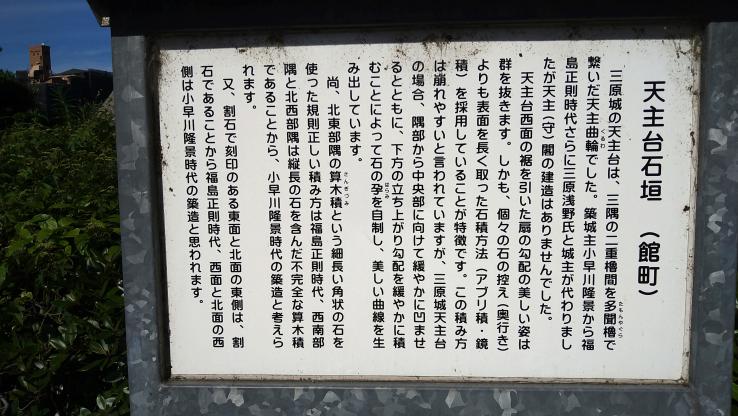 天主台石垣（館町）
三原城の天主台は、三隅の二重櫓間を多聞櫓で
繋いだ天主曲輪でした。築城主小早川隆景から福
島正則時代さらに三原浅野氏と城主が代わりまし
たが天主（守）閣の建造はありませんでした。
天主台西面の裾を引いた扇の勾配の美しい姿は
群を抜きます。しかも、個々の石の控え（奥行き）
よりも表面を長く取った石積方法（アブリ積・鏡
積）を採用していることが特徴です。この積み方
は崩れやすいと言われていますが、三原城天主台
の場合、隅部から中央部に向けて緩やかに凹ませ
るとともに、下方の立ち上がり勾配を緩やかに積
むことによって石の孕を自制し、美しい曲線を生
み出しています。
尚、北東部隅の算木積という細長い角状の石を
使った規則正しい積み方は福島正則時代、西南部
隅と北西部隅は縦長の石を含んだ不完全な算木積
であることから、小早川隆景時代の築造と考えら
れます。
又、割石で刻印のある東面と北面の東側は、割
石であることから福島正則時代、西面と北面の西
側は小早川隆景時代の築造と思われます。